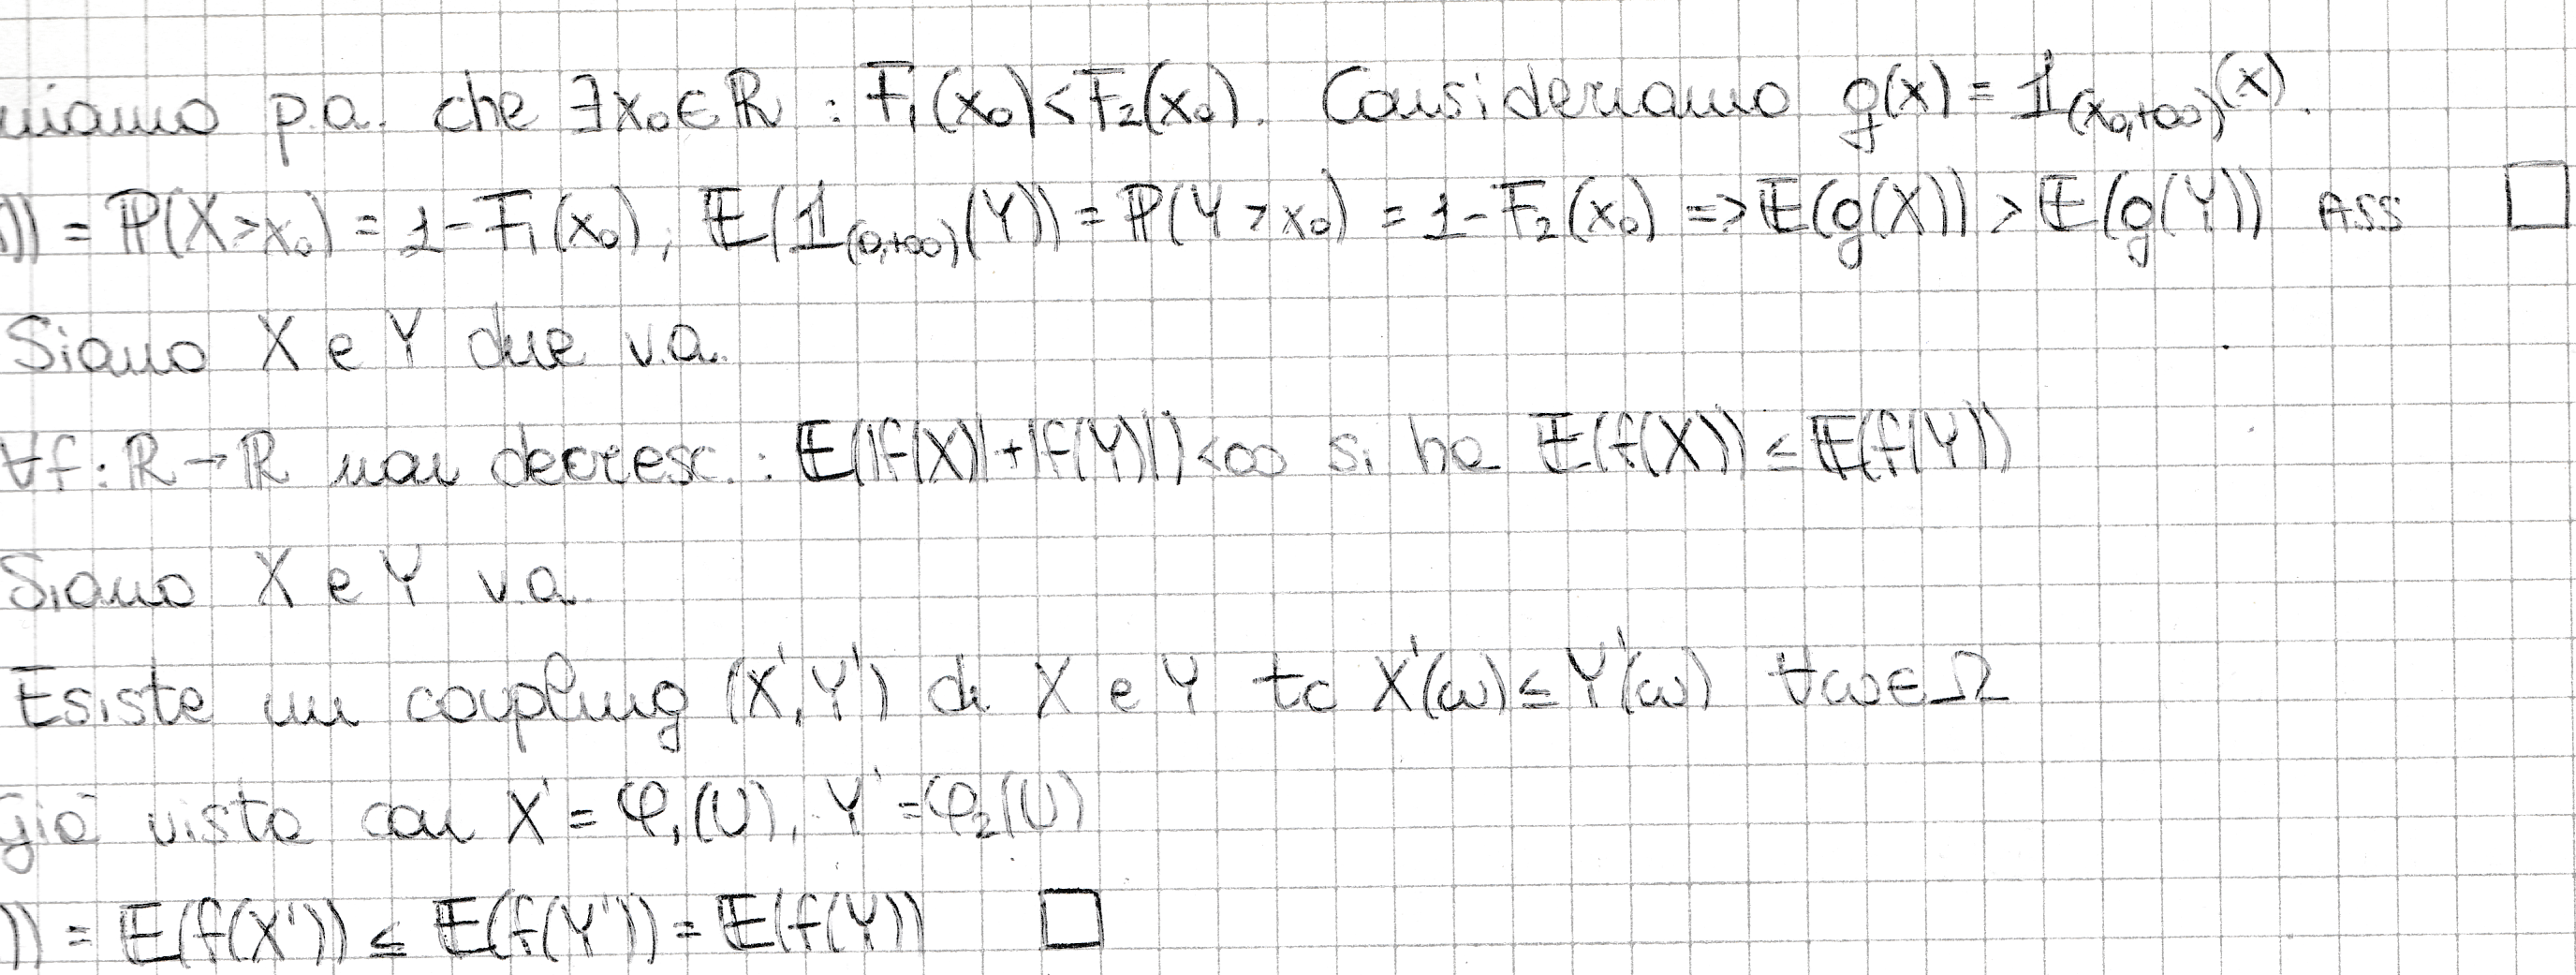 niamo p.a. che ∃x₀∈ℝ : F₁(x₀)<F₂(x₀). Consideriamo g(x) = 𝟙_(x₀,+∞)(x).
)) = ℙ(X>x₀) = 1-F₁(x₀), 𝔼(𝟙_(0,+∞)(Y)) = ℙ(Y>x₀) = 1-F₂(x₀) => 𝔼(g(X)) > 𝔼(g(Y)) ASS □
Siano X e Y due v.a.
∀f: ℝ→ℝ non decresc. : 𝔼(|f(X)|+|f(Y)|)<∞ si ha 𝔼(f(X)) ≤ 𝔼(f(Y))
Siano X e Y v.a.
Esiste un coupling (X',Y') di X e Y tc X'(ω) ≤ Y'(ω) ∀ω∈Ω
già visto con X' = φ₁(U), Y' = φ₂(U)
)) = 𝔼(f(X')) ≤ 𝔼(f(Y')) = 𝔼(f(Y)) □